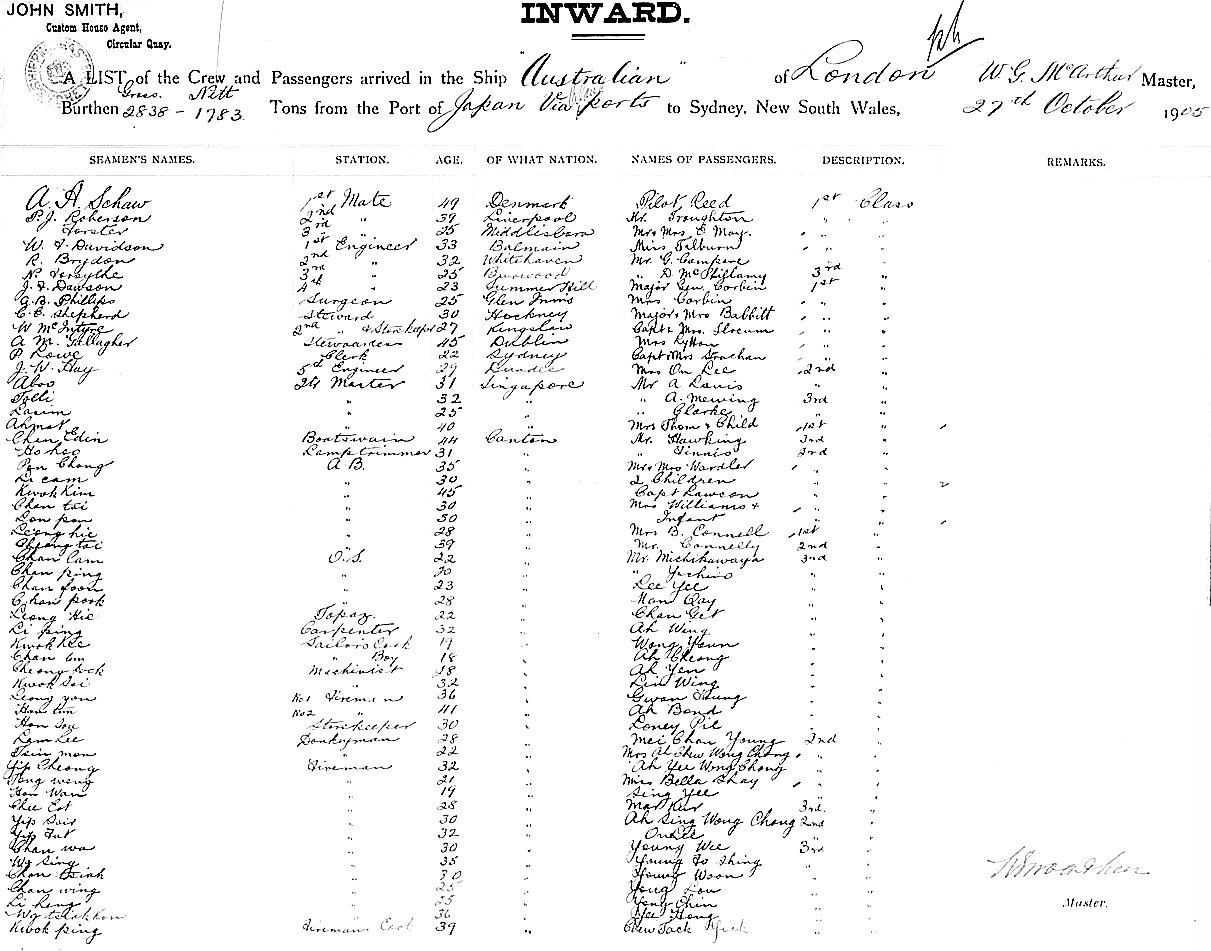 JOHN SMITH, INWARD.
Custom House Agent,
Circular Quay.
A LIST of the Crew and Passengers arrived in the Ship "Australian" of London W G McArthur Master,
Gross. Nett
Burthen 2838 - 1783 Tons from the Port of Japan Via ports to Sydney, New South Wales, 27th October 1905
SEAMEN'S NAMES. STATION. AGE. OF WHAT NATION. NAMES OF PASSENGERS. DESCRIPTION. REMARKS.
A. H. Schaw 1st Mate 49 Denmark Pilot Reed 1st Class
P.J. Roberson 2nd " 39 Liverpool Mr. Troughton " "
Forster 3rd " 25 Middlesboro Mr & Mrs E May. " "
W. F. Davidson 1st Engineer 33 Balmain Miss Tilburn " "
R. Brydon 2nd " 32 Whitehaven Mr. G. Campere " "
N. Forsythe 3rd " 25 Burwood " D. McPhillamy 3rd "
J. F. Dawson 4th " 23 Summer Hill Major Gen. Corbin 1st "
G. B. Phillips Surgeon 25 Glen Innis Mrs Corbin " "
C. E. Shepherd Steward 30 Hockney Major & Mrs Babbitt " "
W McIntyre 2nd " & Storekeeper 27 Kingslin Capt & Mrs. Slocum " "
A. M. Gallagher Stewardess 45 Dublin Mrs Lytton " "
P Rowe Clerk 22 Sydney Capt & Mrs Strachan " "
J. W. Hay 5th Engineer 29 Dundee Mrs On Lee 2nd "
Aloo 2d Master 31 Singapore Mr A Lewis " "
Tolli " 32 " " A. Mewing 3rd "
Lasim " 25 " " Clarke " "
Ahmat " 40 " Mrs Thom & Child 1st "
Chen Edin Boatswain 44 Canton Mr. Hawking 3rd "
Ho hee Lamptrimmer 31 " " Finnis 2nd "
Pan Chong A.B. 35 " Mr & Mrs Wardler " "
Li cam " 30 " 2 Children " "
Kwok Kim " 45 " Capt Lawson " "
Chan tai " 30 " Mrs Williams & " "
Lon pon " 30 " Infant " "
Leong hie " 28 " Mrs B. Connell 1st "
Cheong tai " 39 " Mr. Connelly 2nd "
Chan Cam O.S. 22 " Mr. Michikawaya 3rd "
Chan ping " 20 " " "
Chan foon " 23 " Lee Yee " "
Chan pook " 28 " Man Quy " "
Leong Hie Topaz. 22 " Chan Get " "
Li ping Carpenter 32 " Ah Wing " "
Kwok Kee Sailors Cook 19 " Wong Youn " "
Chan Em " Boy 18 " Ah Cheong " "
Cheong Lock Mechinist 28 " Ah Yen " "
Kwok Soi " 32 " Lin Wing " "
Leong you No1 Fireman 36 " Gwan Young " "
Han tim No2 " 41 " Ah Bond " "
Hon Soy Storekeeper 30 " Loney Pie " "
Lem Lee Donkeyman 28 " Mei Chan Young 2nd "
Tsin mon " 22 " Mrs Ah Chew Wong Chong " "
Yip Cheong Fireman 32 " " Ah Yee Wong Chong " "
Tong weng " 21 " Miss Bella Shay " "
Hon Wan " 19 " Sing Yee " "
Chee Eat " 28 " Mar Kur 3rd "
Yip Soir " 30 " Ah Sing Wong Chong 2nd "
Yip Fat " 32 " On Lee " "
Chan wa " 30 " Young Wee 3rd "
Wo Sing " 35 " Young Fo Shing " "
Chan Tsiah " 30 " Young Woon " "
Chan wing " 25 " Yong Lou " "
Li Heng " 25 " Yong Chin " " Master.
" 36 " Yee Hong " "
Kwok ping Firemans Cook 39 " Chew Jack " "